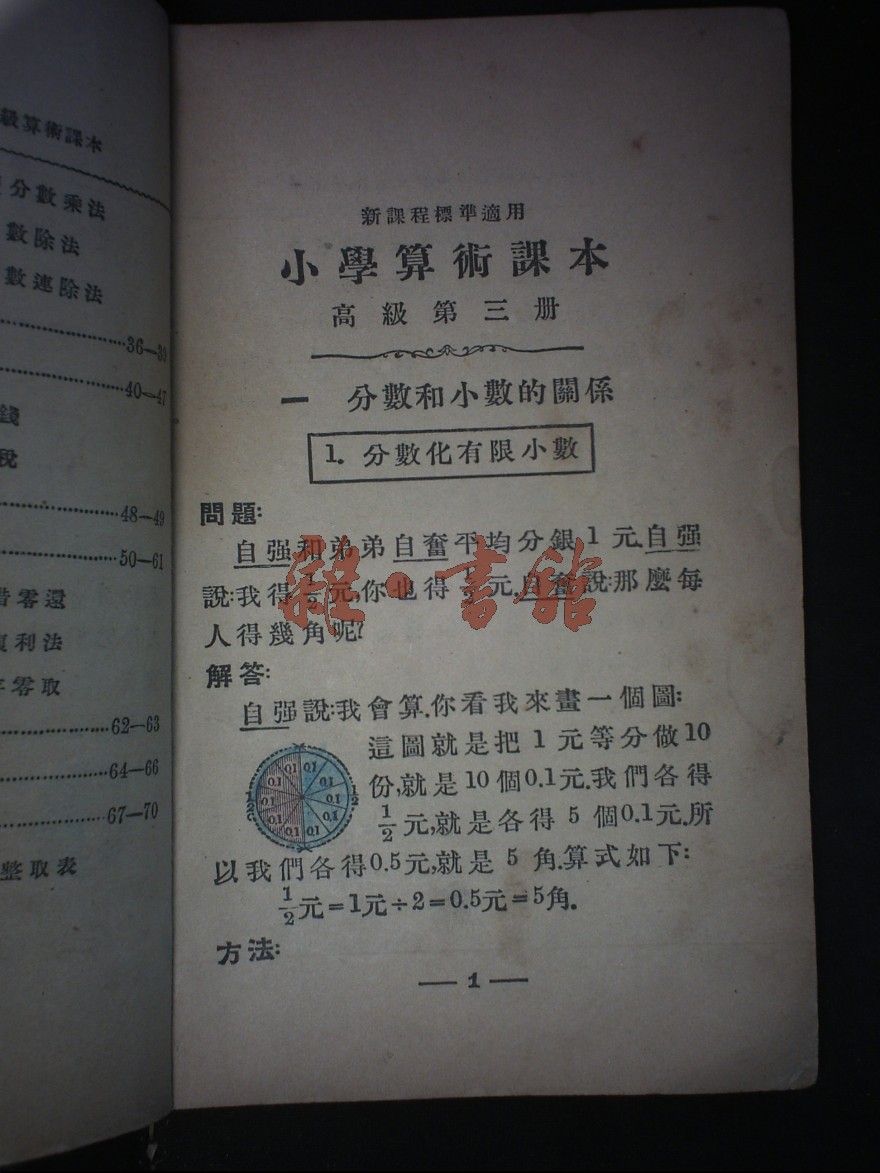 級算術課本
分數乘法
數除法
數連除法
36—
40—47
錢
稅
48—49
50—61
借零還
複利法
零取
62—63
64—66
67—70
整取表
新課程標準適用
小學算術課本
高級第三册
一 分數和小數的關係
1. 分數化有限小數
問題:
自强和弟弟自奮平均分銀1元.自强
說:我得1/2元,你也得1/2元.自奮說:那麼每
人得幾角呢?
解答:
自强說:我會算.你看我來畫一個圖:
這圖就是把1元等分做10
份,就是10個0.1元.我們各得
1/2元,就是各得5個0.1元.所
以我們各得0.5元,就是5角.算式如下:
1/2元=1元÷2=0.5元=5角.
方法:
0.1 0.1
0.1 0.1
0.1 0.1
0.1 0.1
0.1 0.1
1/2 1/2
雜·書館
— 1 —